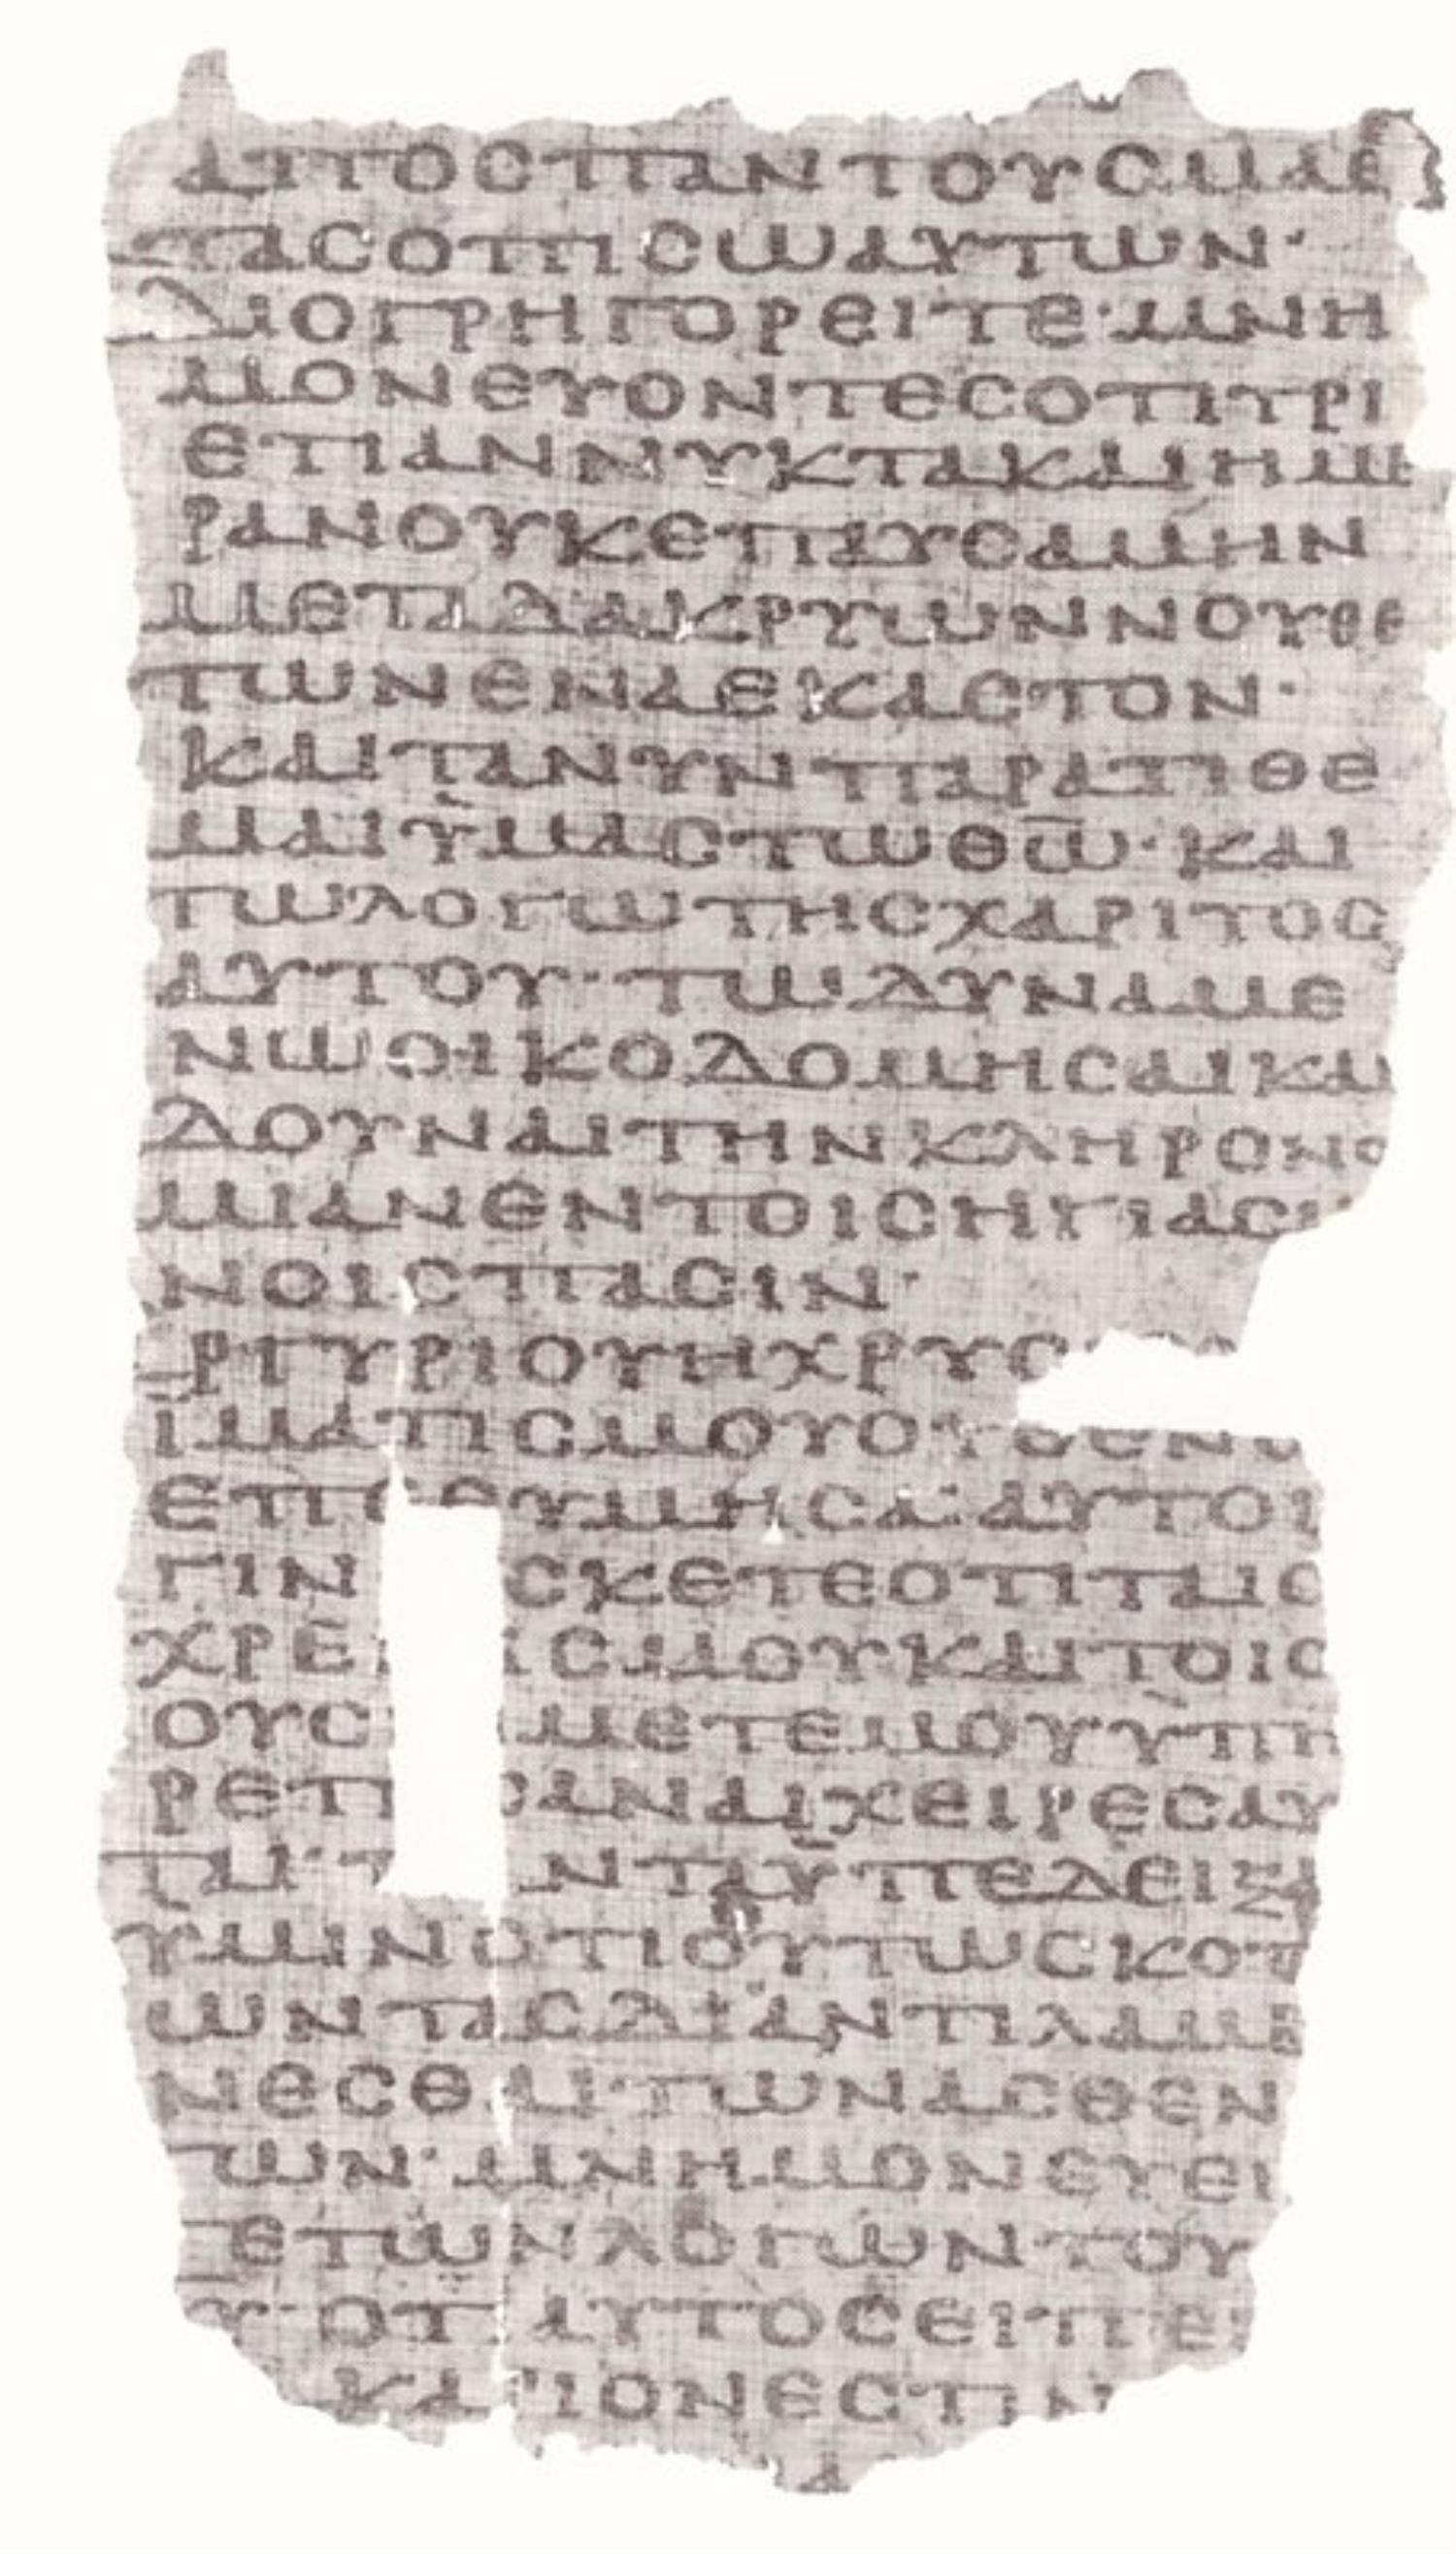 ΑΠΟСΠΑΝΤΟΥСΜΑΘ
ΤΑСΟΠΙСΩΑΥΤΩΝ·
ΔΙΟΓΡΗΓΟΡΕΙΤΕ·ΜΝΗ
ΜΟΝΕΥΟΝΤΕСΟΤΙΤΡΙ
ΕΤΙΑΝΝΥΚΤΑΚΑΙΗΜΕ
ΡΑΝΟΥΚΕΠΑΥСΑΜΗΝ
ΜΕΤΑΔΑΚΡΥΩΝΝΟΥΘΕ
ΤΩΝΕΝΑΕΚΑСΤΟΝ·
ΚΑΙΤΑΝΥΝΠΑΡΑΤΙΘΕ
ΜΑΙΫΜΑСΤΩΘΩ̅·ΚΑΙ
ΤΩΛΟΓΩΤΗСΧΑΡΙΤΟС
ΑΥΤΟΥ·ΤΩΔΥΝΑΜΕ
ΝΩΟΙΚΟΔΟΜΗСΑΙΚΑΙ
ΔΟΥΝΑΙΤΗΝΚΛΗΡΟΝΟ
ΜΙΑΝΕΝΤΟΙСΗΓΙΑС
ΝΟΙСΠΑСΙΝ·
ΡΓΥΡΙΟΥΗΧΡΥС
ΪΜΑΤΙСΜΟΥΟΥΘΕΝΟ
ΕΠΕΘΥΜΗСΑ·ΑΥΤΟΙ
ΓΙΝ СΚΕΤΕΟΤΙΤΑΙС
ΧΡΕ ΙСΜΟΥΚΑΙΤΟΙС
ΟΥС ΜΕΤΕΜΟΥΫΠΗ
ΡΕΤΗСΑΝΑΙΧΕΙΡΕСΑΥ
ΤΑΙ·Π ΝΤΑΫΠΕΔΕΙΞΑ
ΥΜΙΝΟΤΙΟΥΤΩСΚΟΠ
ΩΝΤΑСΔΕΙΑΝΤΙΛΑΜΒ
ΝΕСΘΑΙΤΩΝΑСΘΕΝ
ΤΩΝ·ΜΝΗΜΟΝΕΥΕΙ
ΤΕΤΩΝΛΟΓΩΝΤΟΥ
Υ·ΟΤΙΑΥΤΟСΕΙΠΕ
ΚΑΡΙΟΝΕСΤΙΝ
Α